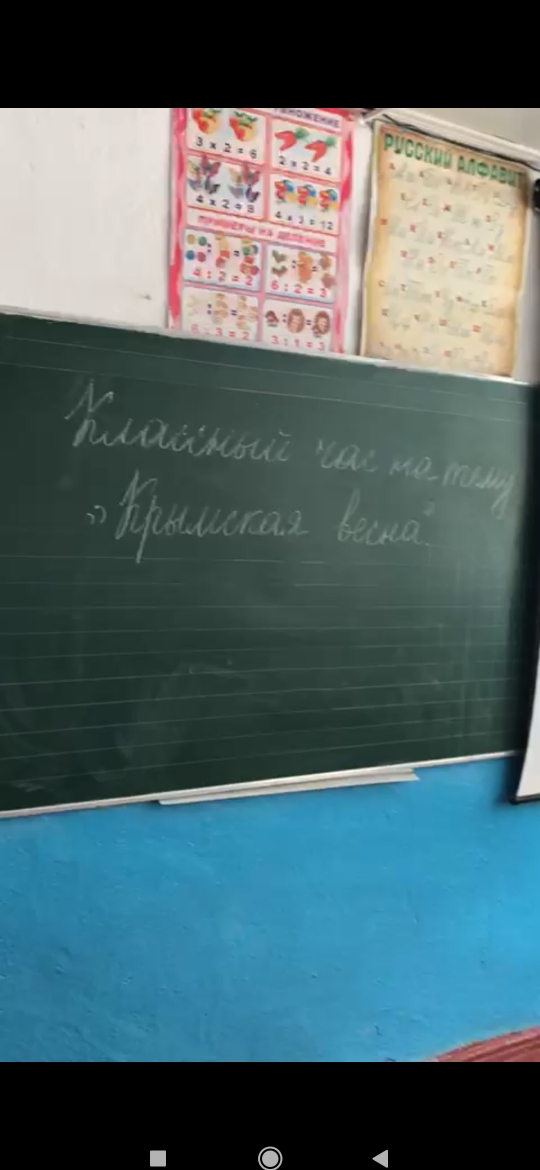 УМНОЖЕНИЕ
3 x 2 = 6
2 x 2 = 4
4 x 2 = 8
4 x 3 = 12
ПРИМЕРЫ НА ДЕЛЕНИЕ
4 : 2 = 2
6 : 2 = 3
6 : 3 = 2
3 : 1 = 3
РУССКИЙ АЛФАВИТ
Классный час на тему
„Крымская весна"